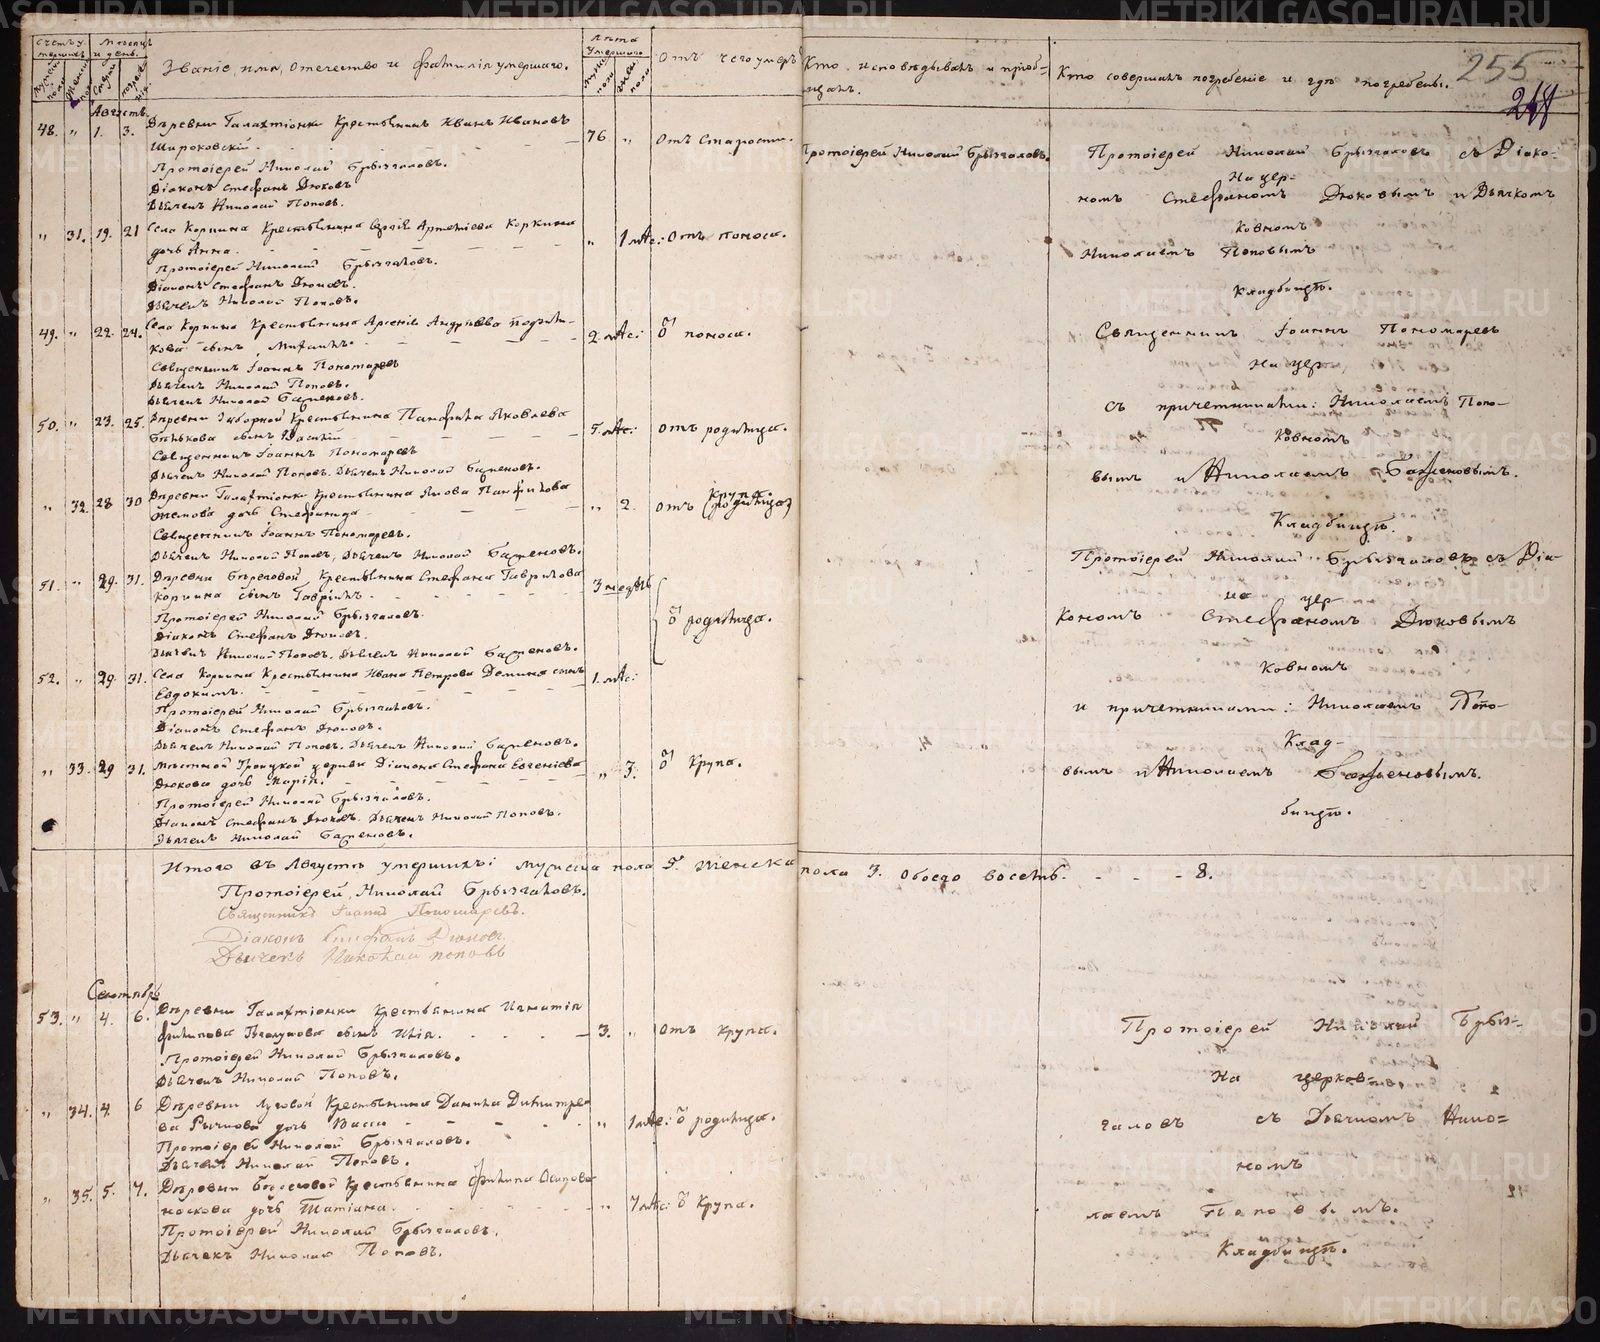 Счетъ умершихъ
Мѣсяцъ и день.
Званіе, имя, отечество и фамилія умершаго.
Лѣта умершаго
Отъ чего умеръ
Кто исповѣдывалъ и пріобщалъ.
Кто совершалъ погребеніе и гдѣ погребены.
255
Августъ.
48. " 1. 3. Деревни Галактіонки Крестьянинъ Иванъ Ивановъ
Широковскій. 76 " Отъ Старости.
Протоіерей Николай Брызгаловъ.
Діаконъ Стефанъ Дюковъ
Дьячекъ Николай Поповъ.
" 31. 19. 21 Села Коркина Крестьянина Артемьева Коркина
дочь Анна. " 1 мѣс: Отъ поноса.
Протоіерей Николай Брызгаловъ.
Діаконъ Стефанъ Дюковъ.
Дьячекъ Николай Поповъ.
49. " 22. 24. Села Коркина Крестьянина Арсенія Андреева
сынъ 2. мѣс: Отъ поноса.
Священникъ Іоаннъ Пономаревъ
Дьячекъ Николай Поповъ.
Дьячекъ Николай Баженовъ.
50. " 23. 25. Деревни Заборной Крестьянина Панфила Яковлева
сынъ Василій 5. мѣс: Отъ родимца.
Священникъ Іоаннъ Пономаревъ
Дьячекъ Николай Поповъ. Дьячекъ Николай Баженовъ.
" 32. 28 30 Деревни Галактіонки Крестьянина Якова Панфилова
дочь Стефанида " 2. Отъ крупа. (родимца)
Священникъ Іоаннъ Пономаревъ.
Дьячекъ Николай Поповъ, Дьячекъ Николай Баженовъ.
51. " 29. 31. Деревни Береговой, Крестьянина Стефана Гаврилова
Коркина сынъ Гавріилъ. 3 недѣль
Протоіерей Николай Брызгаловъ.
Діаконъ Стефанъ Дюковъ. Отъ родимца.
Дьячекъ Николай Поповъ. Дьячекъ Николай Баженовъ.
52. " 29. 31. Села Коркина Крестьянина Ивана Петрова Демина сынъ
Евдокимъ. 1. мѣс:
Протоіерей Николай Брызгаловъ.
Діаконъ Стефанъ Дюковъ.
Дьячекъ Николай Поповъ. Дьячекъ Николай Баженовъ.
" 33. 29 31. Мѣстной Троицкой церкви Діакона Стефана Евгеніева
Дюкова дочь Марія. " 3. Отъ Крупа.
Протоіерей Николай Брызгаловъ.
Діаконъ Стефанъ Дюковъ. Дьячекъ Николай Поповъ.
Дьячекъ Николай Баженовъ.
Протоіерей Николай Брызгаловъ.
Протоіерей Николай Брызгаловъ съ Діако-
На цер-
номъ Стефаномъ Дюковымъ и Дьячкомъ
ковномъ
Николаемъ Поповымъ
Кладбищѣ.
Священникъ Іоаннъ Пономаревъ
На цер
съ причетниками: Николаемъ Попо-
ковномъ
вымъ и Николаемъ Баженовымъ.
Кладбищѣ.
Протоіерей Николай Брызгаловъ съ Діа-
на цер
кономъ Стефаномъ Дюковымъ
ковномъ
и причетниками: Николаемъ Попо-
Клад-
вымъ и Николаемъ Баженовымъ.
бищѣ.
Итого въ Августѣ умершихъ: мужеска пола 5. женска пола 3. Обоего восемь. - - - 8.
Протоіерей, Николай Брызгаловъ.
Священникъ Іоаннъ Пономаревъ.
Діаконъ Стефанъ Дюковъ
Дьячекъ Николай Поповъ
Сентябрь
53. " 4. 6. Деревни Галактіонки Крестьянина Игнатія
Филипова сынъ Илія. 3. " Отъ Крупа.
Протоіерей Николай Брызгаловъ.
Дьячекъ Николай Поповъ.
" 34. 4. 6 Деревни Луговой Крестьянина Данила Димитріе
ва дочь Васса " 1 мѣс: Отъ родимца.
Протоіерей Николай Брызгаловъ.
Дьячекъ Николай Поповъ.
" 35. 5. 7. Деревни Крестьянина Филипа Осипова
дочь Татіана. " 7 мѣс: Отъ Крупа.
Протоіерей Николай Брызгаловъ.
Дьячекъ Николай Поповъ.
Протоіерей Николай Брыз-
На церков-
галовъ съ Дьячкомъ Нико-
номъ
лаемъ Поповымъ.
Кладбищѣ.
METRIKI.GASO-URAL.RU